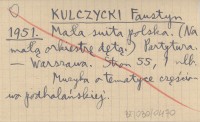 KULCZYCKI Faustyn
1951. Mała suita polska. (Na
małą orkiestrę dętą.) Partytura.
— Warszawa. Stron 55, 1 nlb.
Muzyka o tematyce częścio-
wo podhalańskiej.